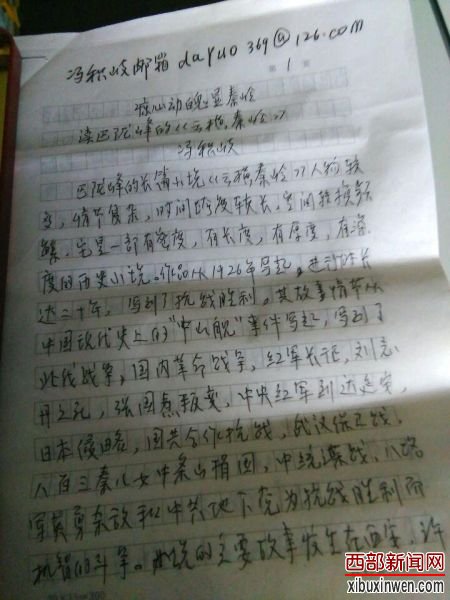 冯积岐邮箱 daruo369@126.com
第 1
惊心动魄显秦岭
读巴陇峰的《云横秦岭》
冯积岐
巴陇峰的长篇小说《云横秦岭》人物较
多，情节复杂，时间跨度较长，空间转换频
繁，它是一部有宽度，有长度，有厚度，有
度的历史小说。作品从1926年写起，进行时长
达二十年，写到了抗战胜利。其故事情节从
中国现代史上的“中山舰”事件写起，写到了
北伐战争，国内革命战争，红军长征，刘志
丹之死，张国焘叛变，中央红军到达延安，
日本侵略，国共合作抗战，武汉保卫战，
八百三秦儿女中条山捐国，中统谍战，八路
军英勇杀敌和中共地下党为抗战胜利而
机智的斗争。小说的主要故事发生在西安，许
西部新闻网
xibuxinwen.com